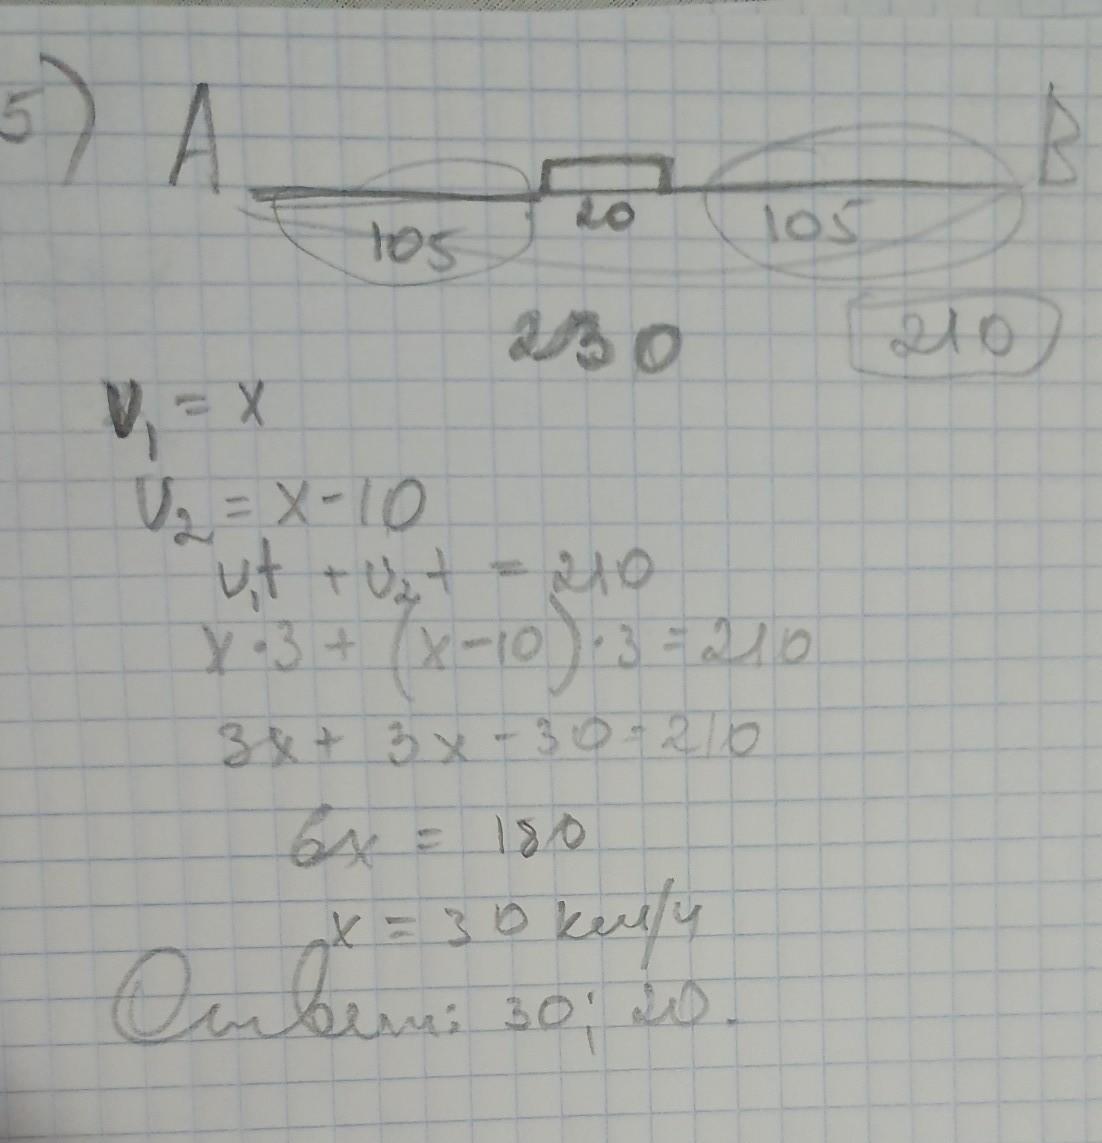 5) A B
105 20 105
230 210
v₁ = x
v₂ = x - 10
v₁t + v₂t = 210
x · 3 + (x - 10) · 3 = 210
3x + 3x - 30 = 210
6x = 180
x = 30 км/ч
Ответ: 30; 20.